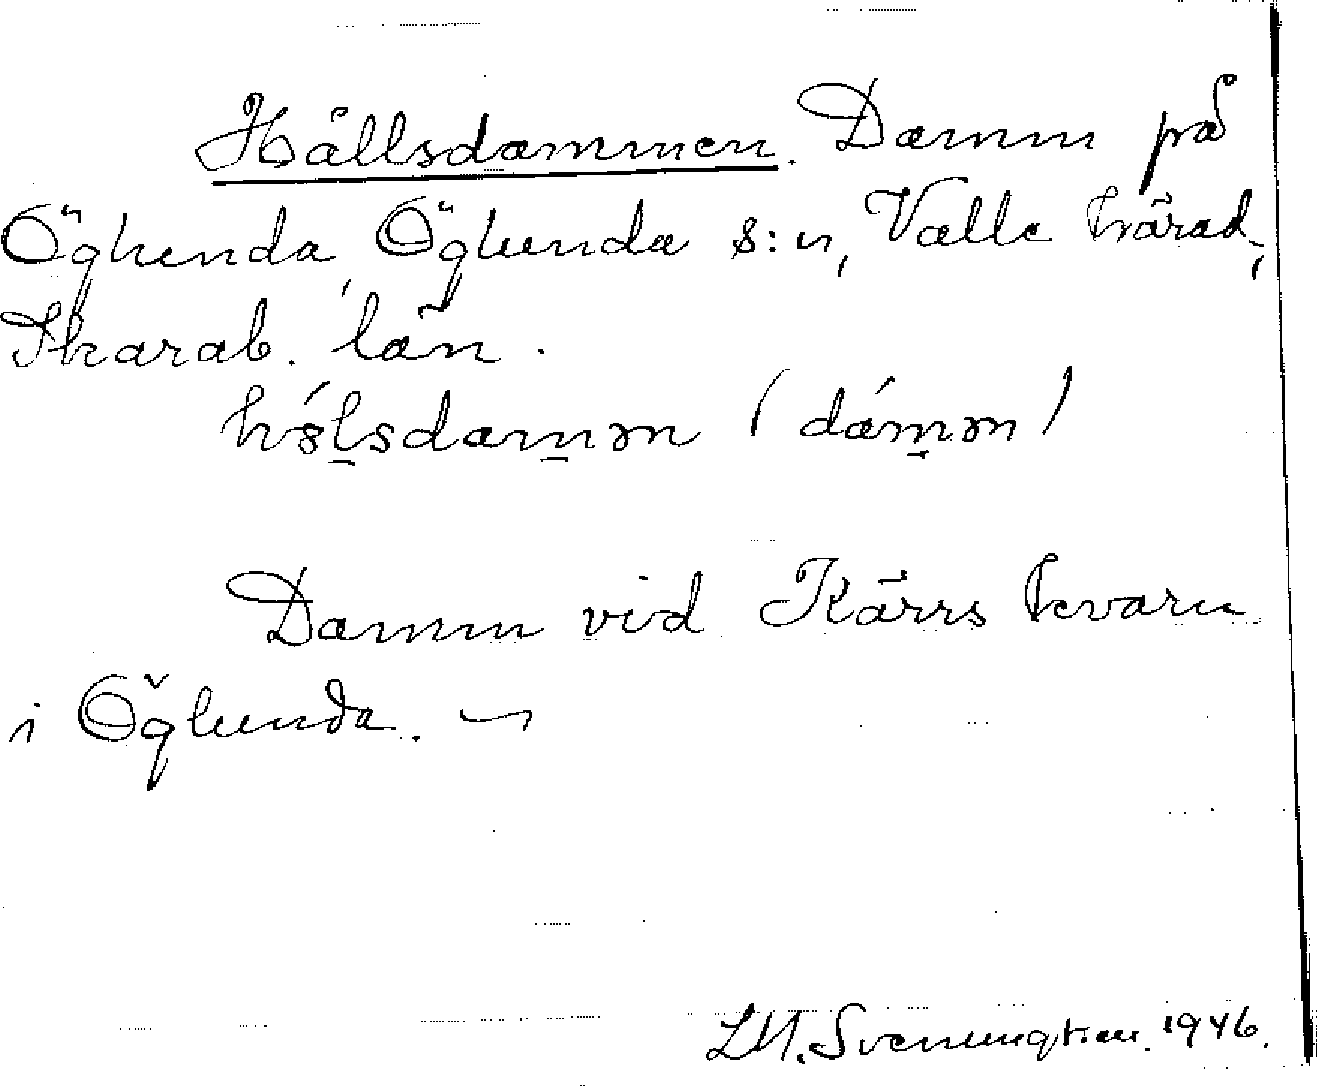 Hållsdammen. Damm på
Öglunda, Öglunda s:n, Valle härad,
Skarab. län.
damən (dámən)
Damm vid Kärrs kvarn
i Öglunda.
1946.